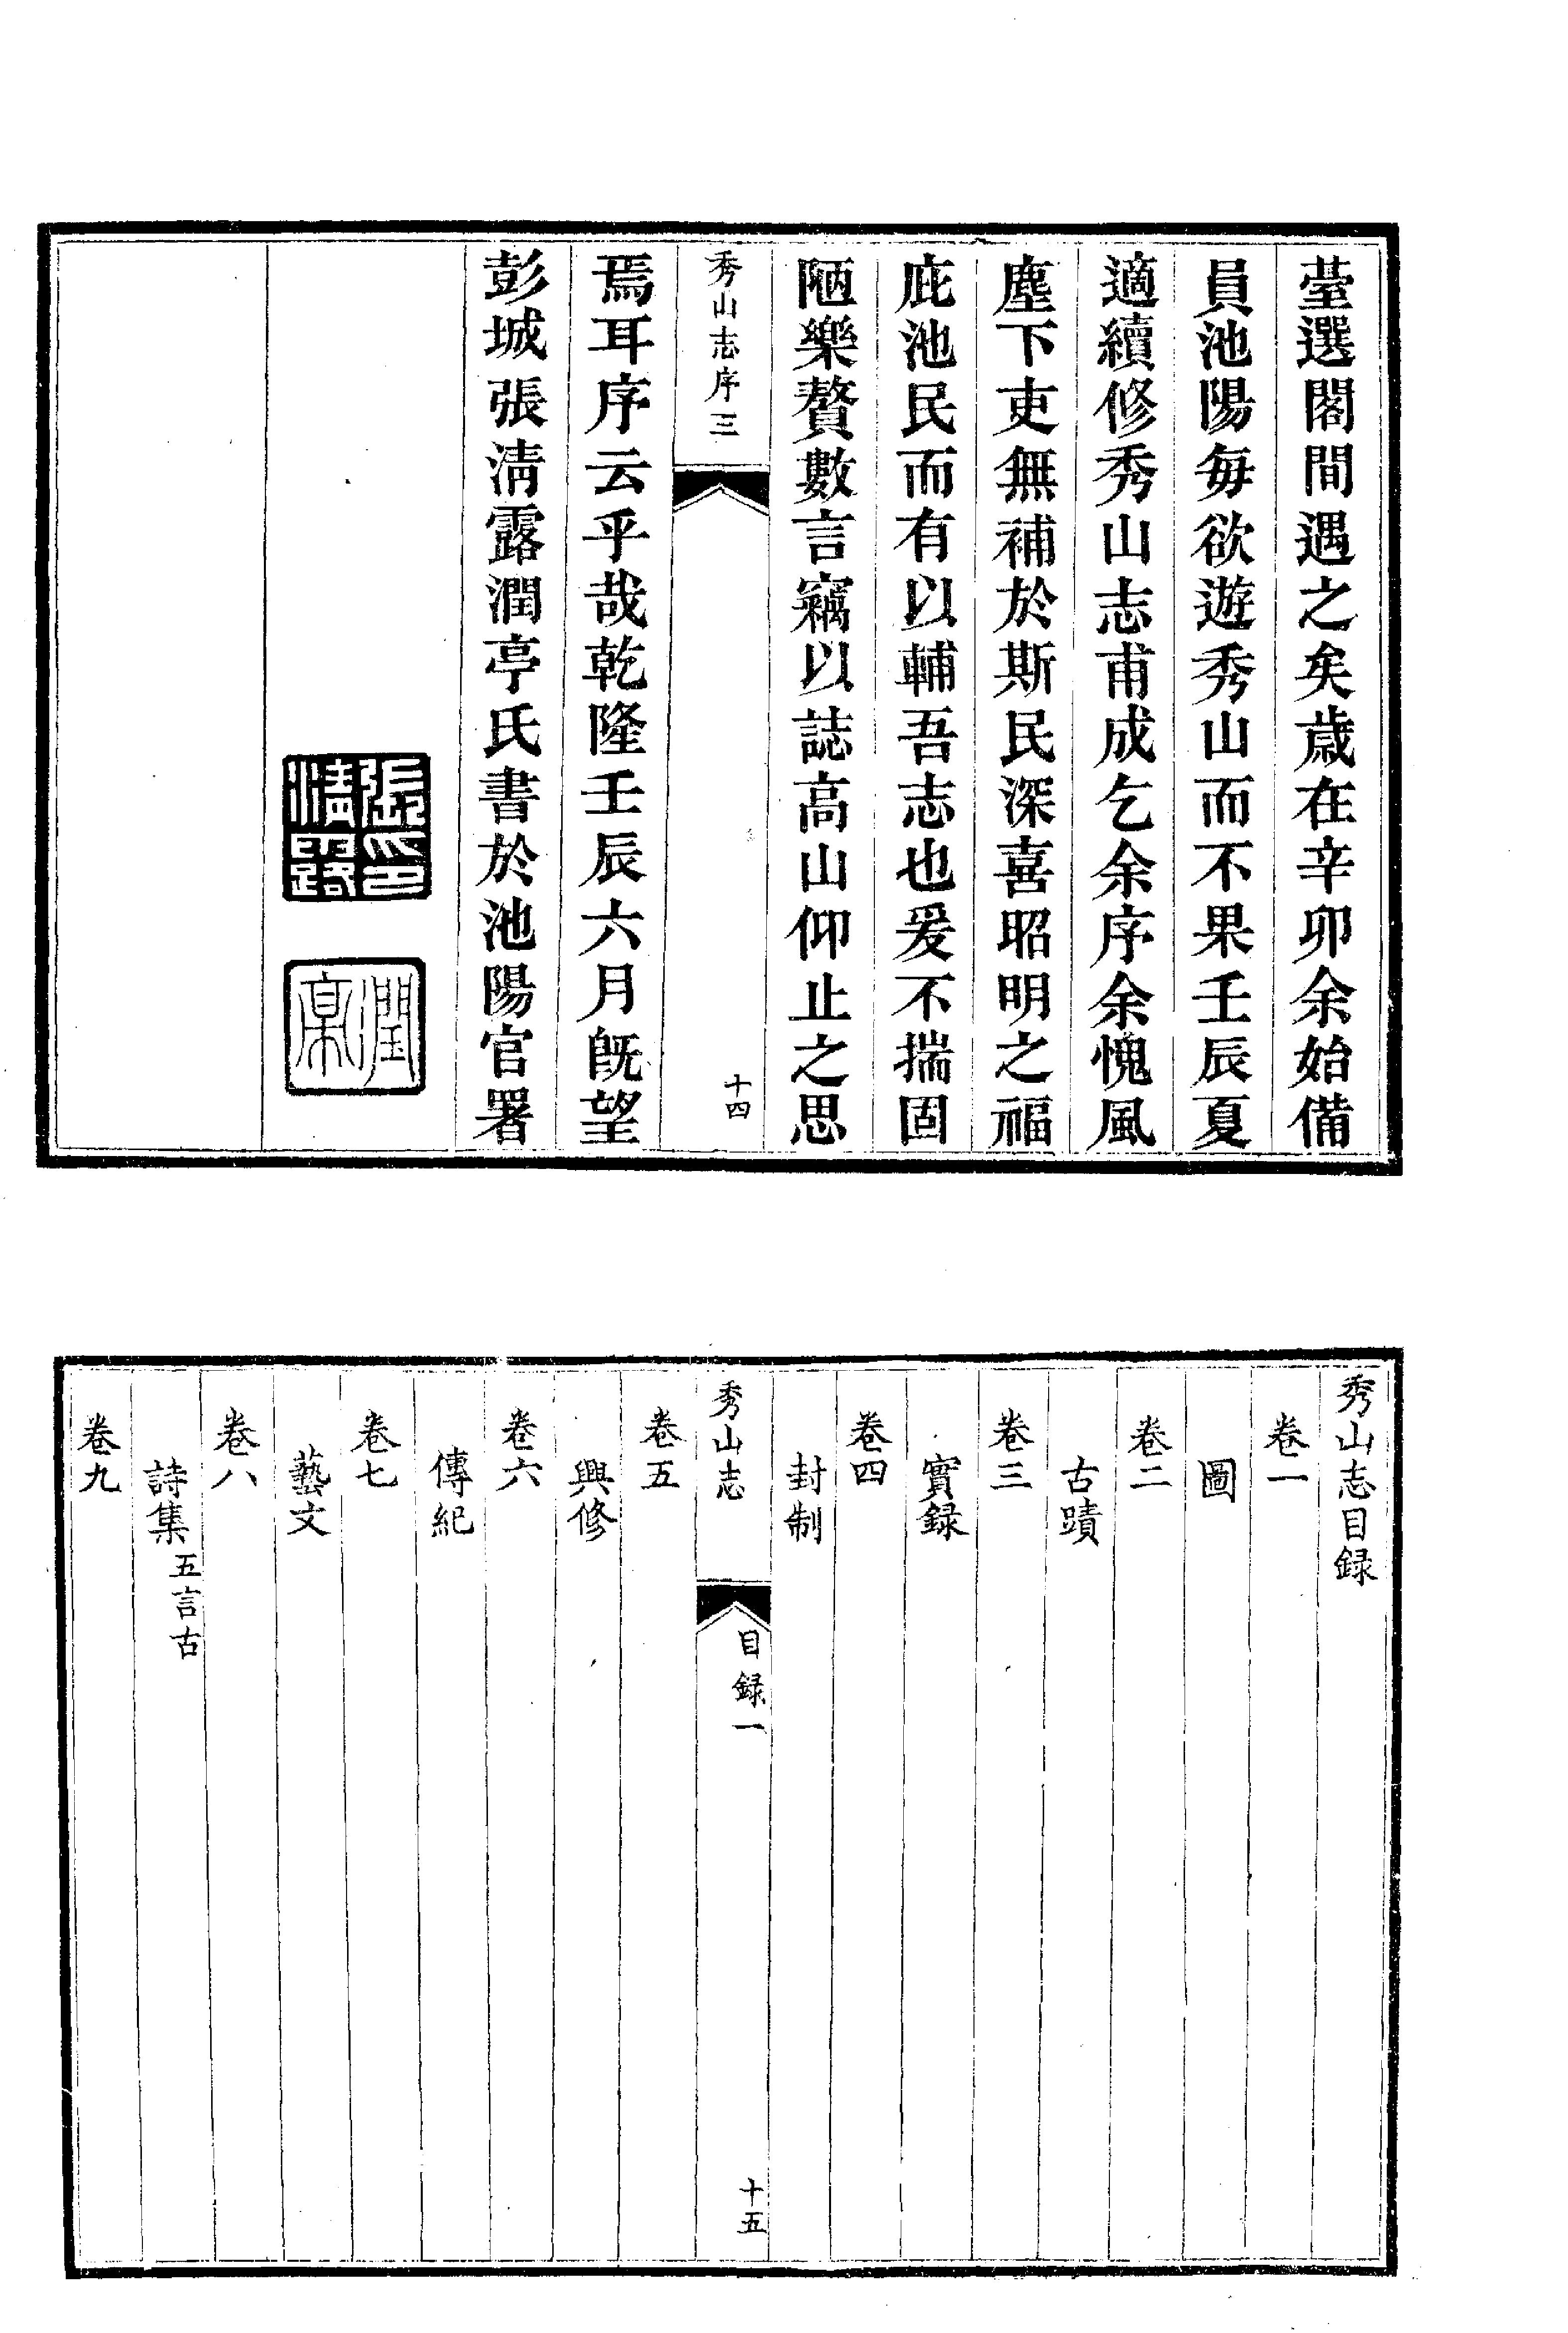 臺選閣間遇之矣歲在辛卯余始備
員池陽每欲遊秀山而不果壬辰夏
適續修秀山志甫成乞余序余愧風
塵下吏無補於斯民深喜昭明之福
庇池民而有以輔吾志也爰不揣固
陋樂贅數言竊以誌高山仰止之思
秀山志序三
十四
焉耳序云乎哉乾隆壬辰六月旣望
彭城張清露潤亭氏書於池陽官署
張印清露
潤亭
秀山志目録
卷一
圖
卷二
古蹟
卷三
實録
卷四
封制
秀山志
目録一
十五
卷五
興修
卷六
傳紀
卷七
藝文
卷八
詩集 五言古
卷九